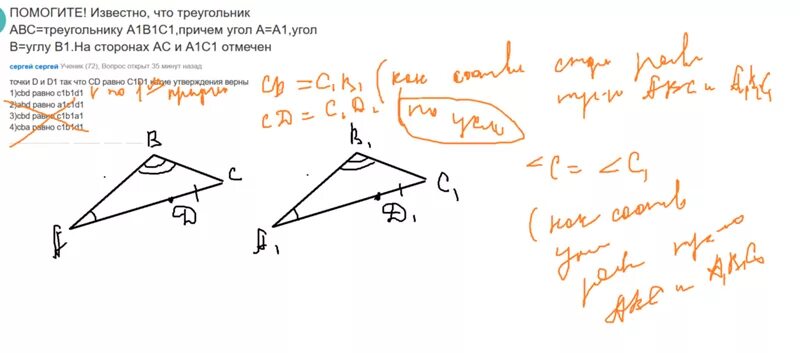 ПОМОГИТЕ! Известно, что треугольник
ABC=треугольнику A1B1C1,причем угол A=A1,угол
B=углу B1.На сторонах AC и A1C1 отмечен
сергей сергей Ученик (72), Вопрос открыт 35 минут назад
точки D и D1 так что CD равно C1D1 какие утверждения верны
1)cbd равно c1b1d1
2)abd равно a1c1d1
3)cbd равно c1b1a1
4)cba равно c1b1d1
v по 1
CB = C₁B₁ (как соотв
CD = C₁D₁
по усло
стор равн
тр-в ABC и A₁B₁C₁
∠C = ∠C₁
(как соотв
угл
равн
ABC и A₁B₁C₁
B
C
D
A
B₁
C₁
D₁
A₁